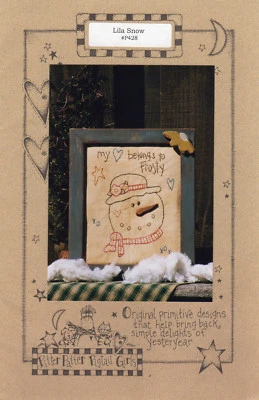 Lila Snow
#P428
my belongs to
Frosty
Original primitive designs
that help bring back,
simple delights of
yesteryear
Pitter Patter Pigtail Girls